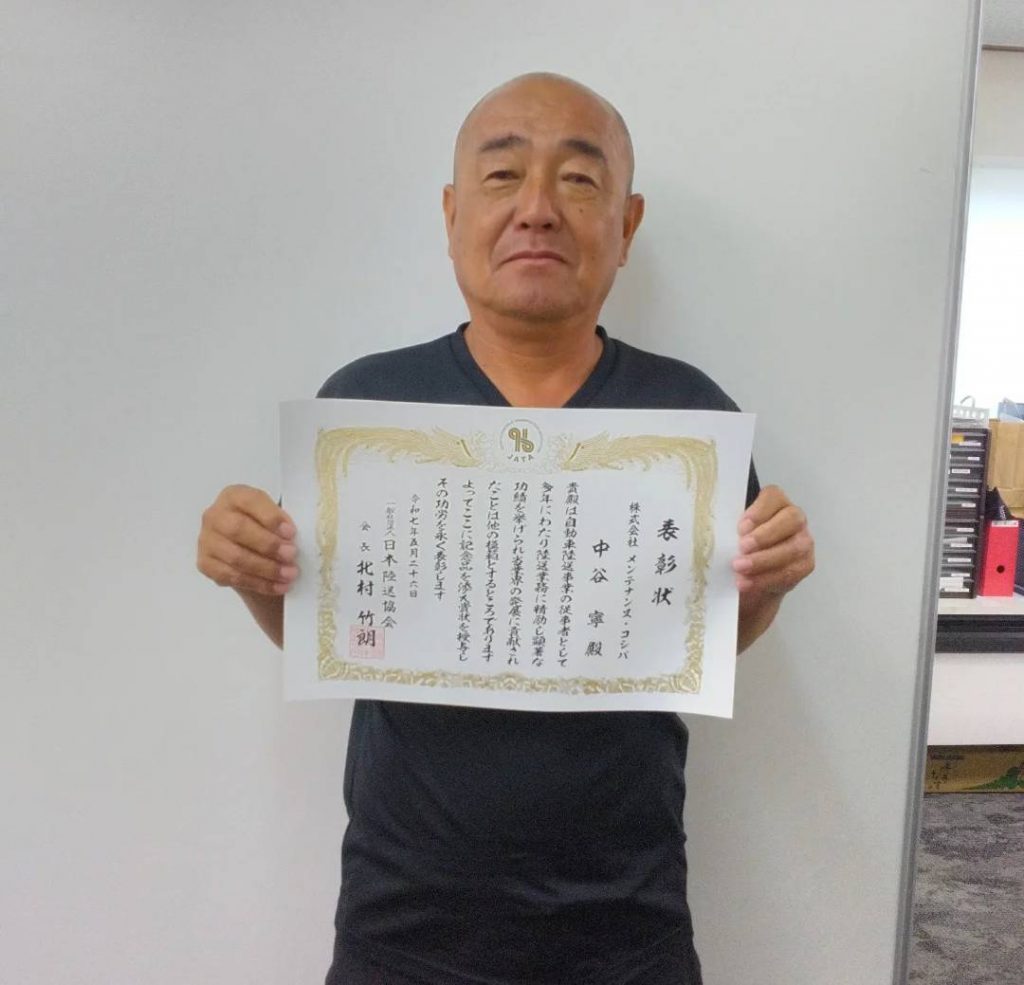 JATA
表彰状
株式会社 メンテナンス・コシバ
中谷 寧 殿
貴殿は自動車陸送事業の従事者として
多年にわたり陸送業務に精励し顕著な
功績を挙げられ当業界の発展に貢献され
たことは他の模範とするところであります
よってここに記念品を添え賞状を授与し
その功労を永く表彰します
令和七年五月二十六日
一般社団法人 日本陸送協会
会長 北村 竹朗